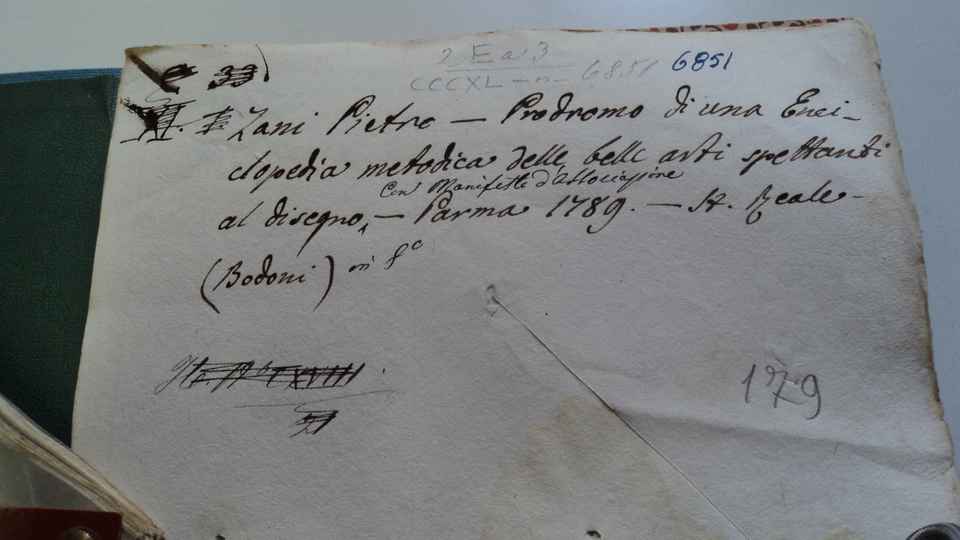 2 Ea: 3
CCCXL - n - 6851 6851
Zani Pietro — Prodromo di una Enci-
clopedia metodica delle belle arti spettanti
Con Manifesto d'Associazione
al disegno, — Parma 1789. — St. Reale -
(Bodoni) in 8º
179